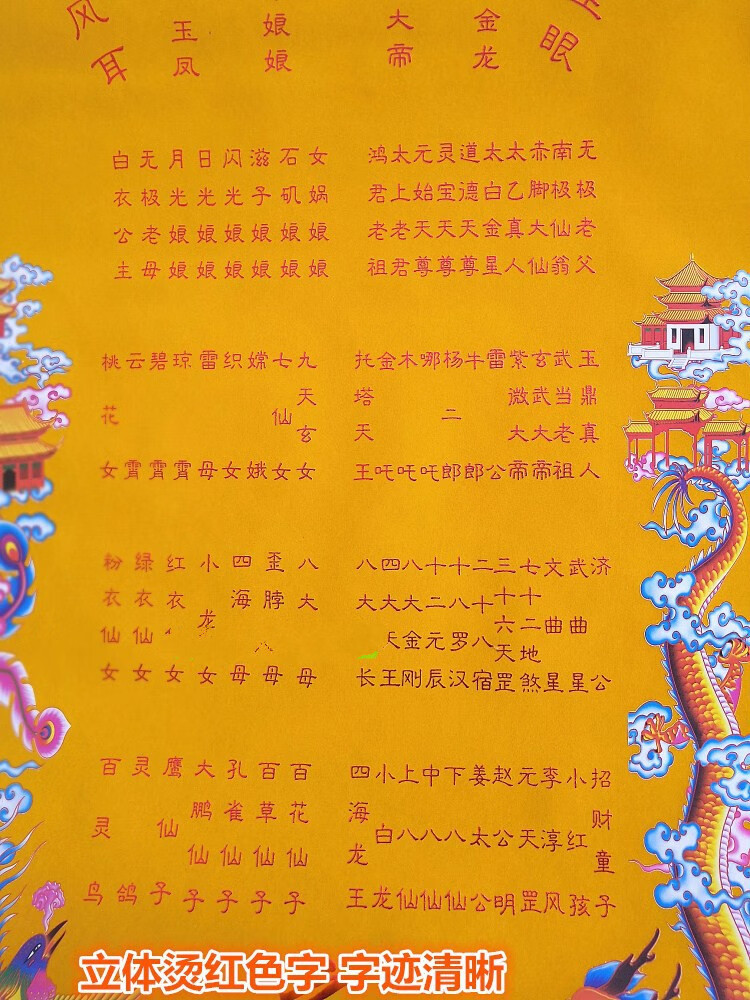 眼
金龙
大帝
娘娘
玉凤
风耳
无极老父
南极仙翁
赤脚大仙
太乙真人
太白金星
道德天尊
灵宝天尊
元始天尊
太上老君
鸿君老祖
女娲娘娘
石矶娘娘
滋子娘娘
闪光娘娘
日光娘娘
月光娘娘
无极老母
白衣公主
玉鼎真人
武当老祖
玄武大帝
紫微大帝
雷公
牛郎
杨二郎
哪吒
木吒
金吒
托塔天王
九天玄女
七仙女
嫦娥
织女
雷母
琼霄
碧霄
云霄
桃花女
济公
武曲星
文曲星
七十二地煞
三十六天罡
二十八宿
十八罗汉
十二元辰
八大金刚
四大天王
八大长
八大母
歪脖母
四海母
小龙女
红衣女
绿衣仙女
粉衣仙女
招财童子
小红孩
李淳风
元天罡
赵公明
姜太公
下八仙
中八仙
上八仙
小白龙
四海龙王
百花仙子
百草仙子
孔雀仙子
大鹏仙子
鹰仙子
灵鸽
百灵鸟
立体烫红色字 字迹清晰